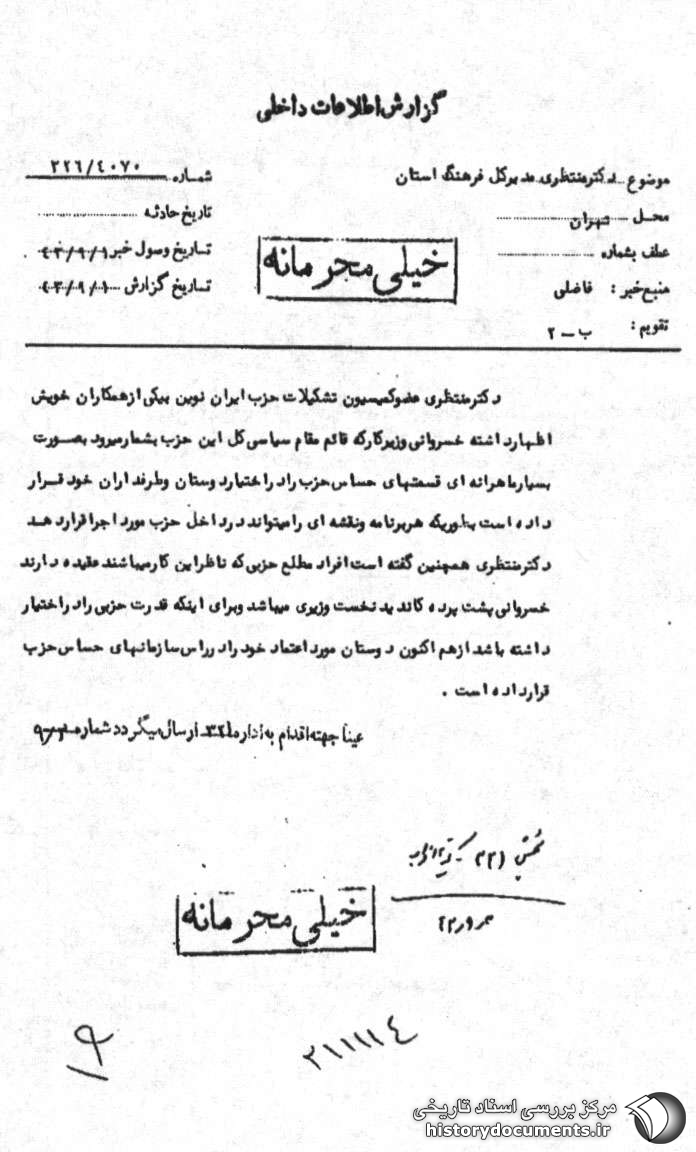 گزارش اطلاعات داخلی
موضوع دکتر منتظری مدیرکل فرهنگ استان
شماره ۳۲۶/٤۰۷۰
محل تهران
تاریخ حادثه
عطف بشماره
تاریخ وصول خبر ۴۳/۹/۱
منبع خبر : فاضلی
تاریخ گزارش ۴۳/۹/۱۰
تقویم : ب – ۲
خیلی مجرمانه
دکتر منتظری عضو کمیسیون تشکیلات حزب ایران نوین بیکی از همکاران خویش
اظهار داشته خسروانی وزیر کار که قائم مقام سیاسی کل این حزب بشمار میرود بصورت
بسیار ماهرانه ای قسمتهای حساس حزب را در اختیار دوستان و طرفداران خود قرار
داده است بطوریکه هر برنامه و نقشه ای را میتواند در داخل حزب مورد اجرا قرار دهد
دکتر منتظری همچنین گفته است افراد مطلع حزبی که ناظر این کار میباشند عقیده دارند
خسروانی پشت پرده کاندید نخست وزیری میباشد و برای اینکه قدرت حزبی را در اختیار
داشته باشد از هم اکنون دوستان مورد اعتماد خود را در راس سازمانهای حساس حزب
قرار داده است .
عینا جهته اقدام به اداره ۳۲۱ ارسال میگردد شماره
بخش ۳۲۱
خیلی محرمانه
۲۱۱۱۱٤
۹
مرکز بررسی اسناد تاریخی
historydocuments.ir